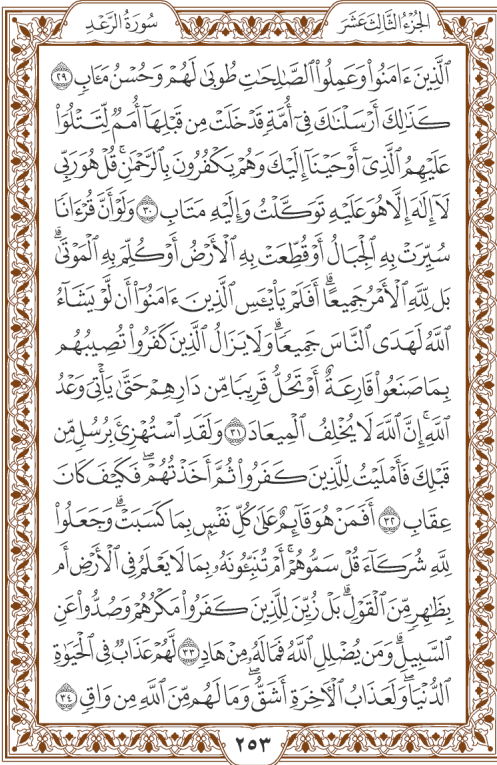 الجُزْءُ الثَّالِثَ عَشَرَ
سُورَةُ الرَّعْدِ
ٱلَّذِينَ ءَامَنُواْ وَعَمِلُواْ ٱلصَّٰلِحَٰتِ طُوبَىٰ لَهُمْ وَحُسْنُ مَـَٔابٖ ٢٩
كَذَٰلِكَ أَرْسَلْنَٰكَ فِيٓ أُمَّةٖ قَدْ خَلَتْ مِن قَبْلِهَآ أُمَمٞ لِّتَتْلُوَاْ
عَلَيْهِمُ ٱلَّذِيٓ أَوْحَيْنَآ إِلَيْكَ وَهُمْ يَكْفُرُونَ بِٱلرَّحْمَٰنِۚ قُلْ هُوَ رَبِّي
لَآ إِلَٰهَ إِلَّا هُوَ عَلَيْهِ تَوَكَّلْتُ وَإِلَيْهِ مَتَابِ ٣٠ وَلَوْ أَنَّ قُرْءَانٗا
سُيِّرَتْ بِهِ ٱلْجِبَالُ أَوْ قُطِّعَتْ بِهِ ٱلْأَرْضُ أَوْ كُلِّمَ بِهِ ٱلْمَوْتَىٰۗ
بَل لِّلَّهِ ٱلْأَمْرُ جَمِيعًاۗ أَفَلَمْ يَاْيْـَٔسِ ٱلَّذِينَ ءَامَنُوٓاْ أَن لَّوْ يَشَآءُ
ٱللَّهُ لَهَدَى ٱلنَّاسَ جَمِيعٗاۗ وَلَا يَزَالُ ٱلَّذِينَ كَفَرُواْ تُصِيبُهُم
بِمَا صَنَعُواْ قَارِعَةٌ أَوْ تَحُلُّ قَرِيبٗا مِّن دَارِهِمْ حَتَّىٰ يَأْتِيَ وَعْدُ
ٱللَّهِۚ إِنَّ ٱللَّهَ لَا يُخْلِفُ ٱلْمِيعَادَ ٣١ وَلَقَدِ ٱسْتُهْزِئَ بِرُسُلٖ مِّن
قَبْلِكَ فَأَمْلَيْتُ لِلَّذِينَ كَفَرُواْ ثُمَّ أَخَذْتُهُمْۖ فَكَيْفَ كَانَ
عِقَابِ ٣٢ أَفَمَنْ هُوَ قَآئِمٌ عَلَىٰ كُلِّ نَفْسِۭ بِمَا كَسَبَتْۗ وَجَعَلُواْ
لِلَّهِ شُرَكَآءَ قُلْ سَمُّوهُمْۚ أَمْ تُنَبِّـُٔونَهُۥ بِمَا لَا يَعْلَمُ فِي ٱلْأَرْضِ أَم
بِظَٰهِرٖ مِّنَ ٱلْقَوْلِۗ بَلْ زُيِّنَ لِلَّذِينَ كَفَرُواْ مَكْرُهُمْ وَصُدُّواْ عَنِ
ٱلسَّبِيلِۗ وَمَن يُضْلِلِ ٱللَّهُ فَمَا لَهُۥ مِنْ هَادٖ ٣٣ لَّهُمْ عَذَابٞ فِي ٱلْحَيَوٰةِ
ٱلدُّنْيَاۖ وَلَعَذَابُ ٱلْأٓخِرَةِ أَشَقُّۖ وَمَا لَهُم مِّنَ ٱللَّهِ مِن وَاقٖ ٣٤
٢٥٣